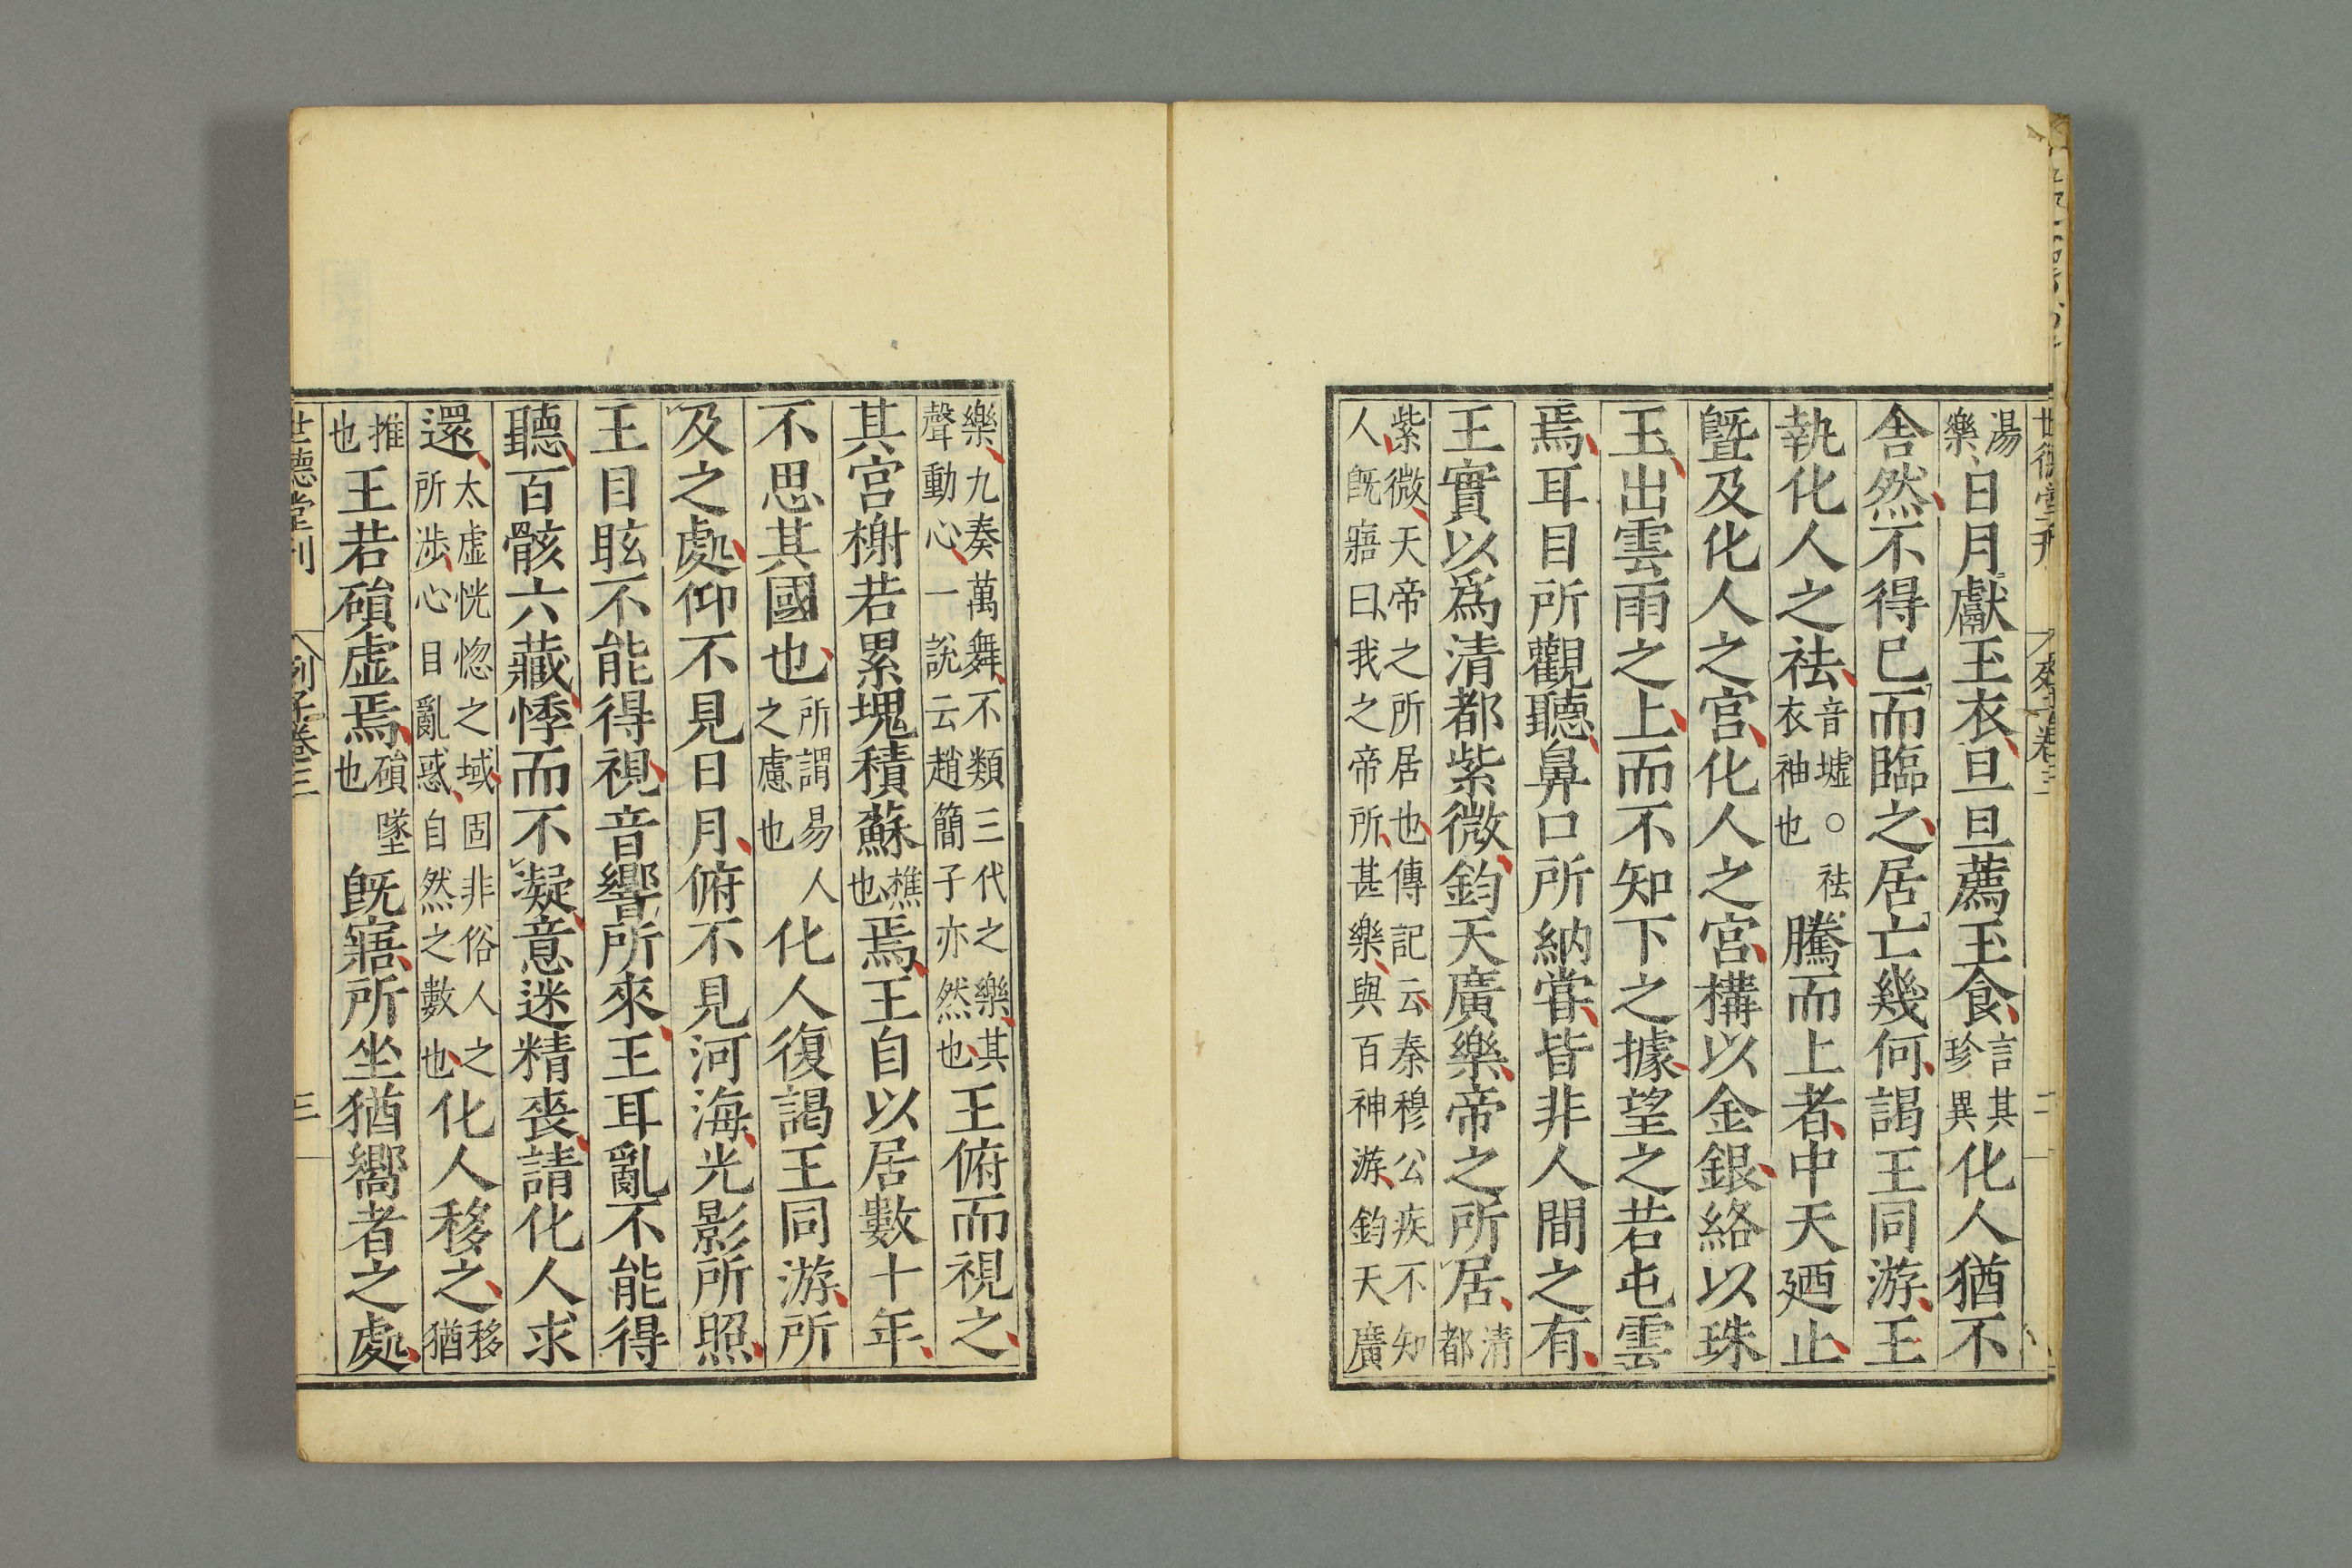 世德堂刊 列子卷三 二
湯樂日月獻玉衣旦旦薦玉食言其珍異化人猶不
舍然不得已而臨之居亡幾何謁王同游王
執化人之袪音墟○袪衣袖也騰而上者中天廼止
曁及化人之宮化人之宮構以金銀絡以珠
玉出雲雨之上而不知下之據望之若屯雲
焉耳目所觀聽鼻口所納嘗皆非人間之有
王實以爲清都紫微鈞天廣樂帝之所居清都
紫微天帝之所居也傳記云秦穆公疾不知人旣寤曰我之帝所甚樂與百神游鈞天廣
樂九奏萬舞不類三代之樂其聲動心一說云趙簡子亦然也王俯而視之
其宮榭若累塊積蘇樵也焉王自以居數十年
不思其國也所謂易人之慮也化人復謁王同游所
及之處仰不見日月俯不見河海光影所照
王目眩不能得視音響所來王耳亂不能得
聽百骸六藏悸而不凝意迷精喪請化人求
還太虛恍惚之域固非俗人之所涉心目亂惑自然之數也化人移之移猶
推也王若磒虛焉磒墜也旣寤所坐猶嚮者之處
世德堂刊 列子卷三 三